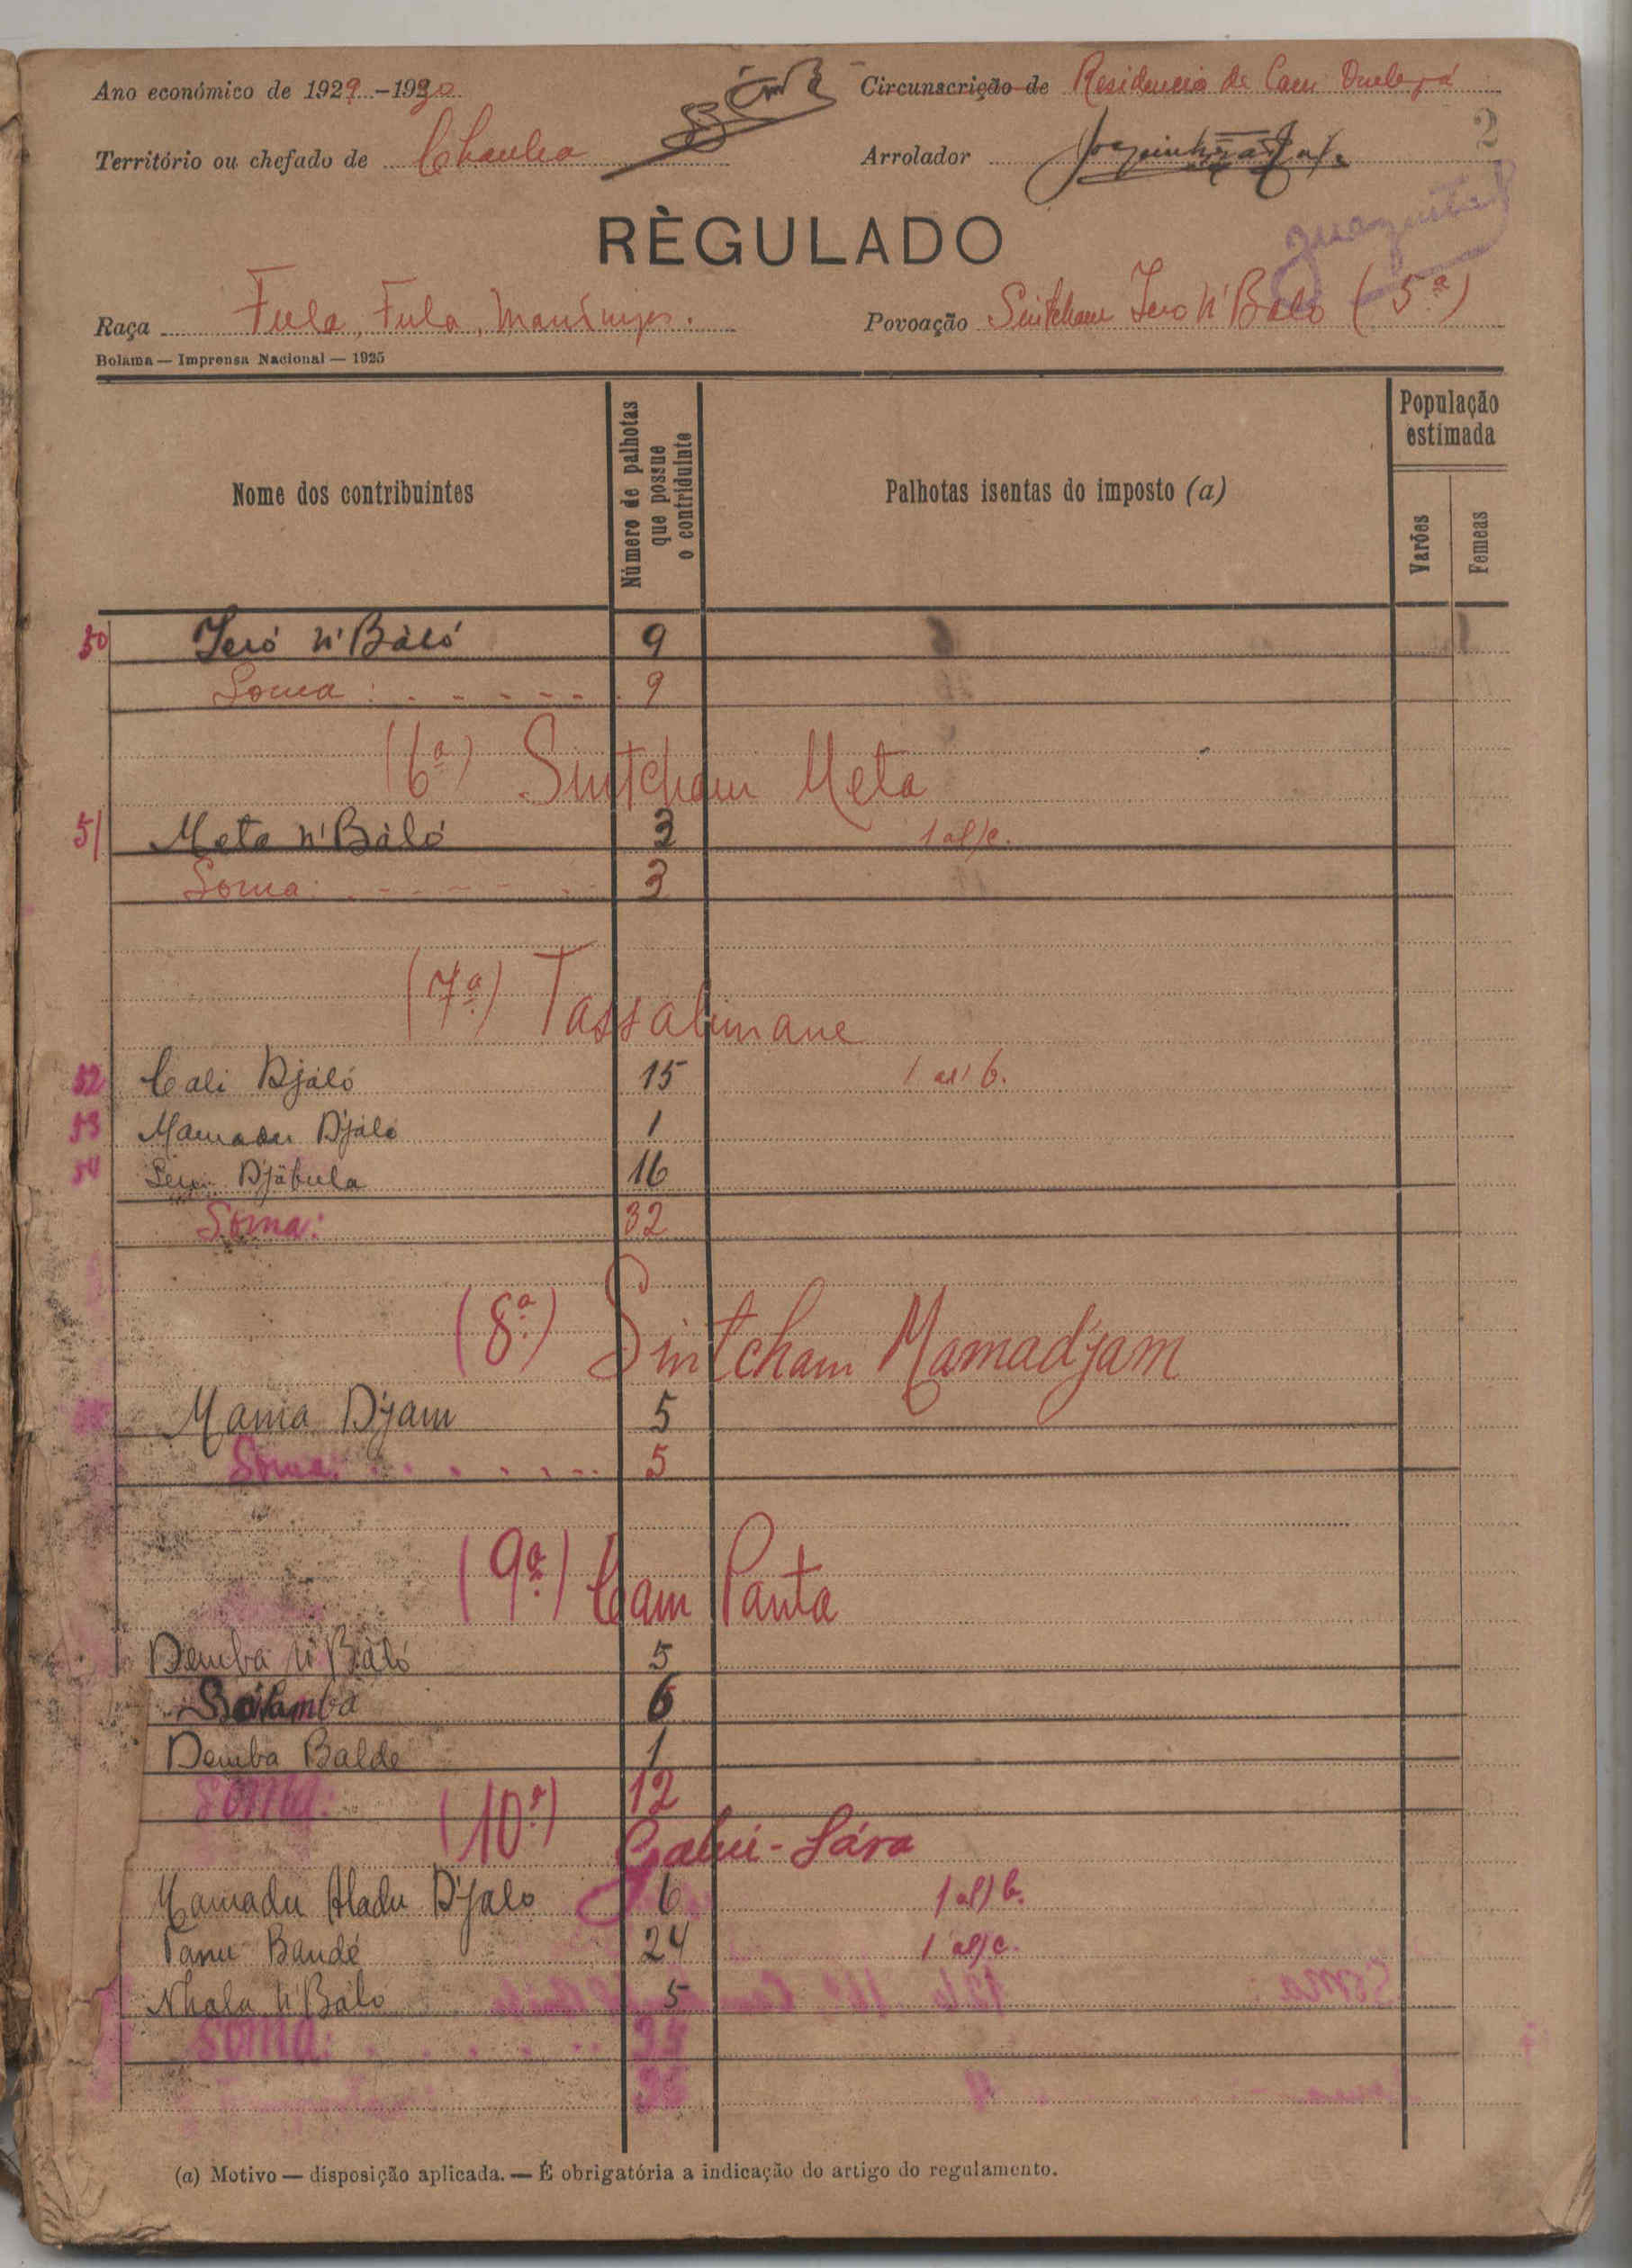 Ano económico de 1929-1930
Circunscrição de Residencia de Cam
Território ou chefado de Chanha
Arrolador
2
RÈGULADO
Raça Fula, Fula,
Povoação Sintcham Jeró N'Balo (5ª)
Bolama — Imprensa Nacional — 1925
Nome dos contribuintes
Número de palhotas que possue o contriduinte
Palhotas isentas do imposto (a)
População estimada
Varões
Femeas
50 Jeró N'Báló 9
Soma: 9
(6ª) Sintcham Meta
51 Meta N'Bálo 3 1 al/c.
Soma: 3
(7ª) Tassalimane
52 Cali Djaló 15 1 al/ b.
53 Mamadu Djaló 1
54 Djabula 16
Soma: 32
(8ª) Sintcham Mamadjam
Mama Djam 5
Soma: 5
(9ª) Cam Panta
Demba N'Báló 5
6
Demba Balde 1
Soma: 12
(10ª) Gabui-Sára
Mamadu Aladu Djalo 6 1 al) b.
Panu Bandé 24 1 al)c.
Nhala N'Bálo 5
Soma: 35
(a) Motivo — disposição aplicada. — É obrigatória a indicação do artigo do regulamento.